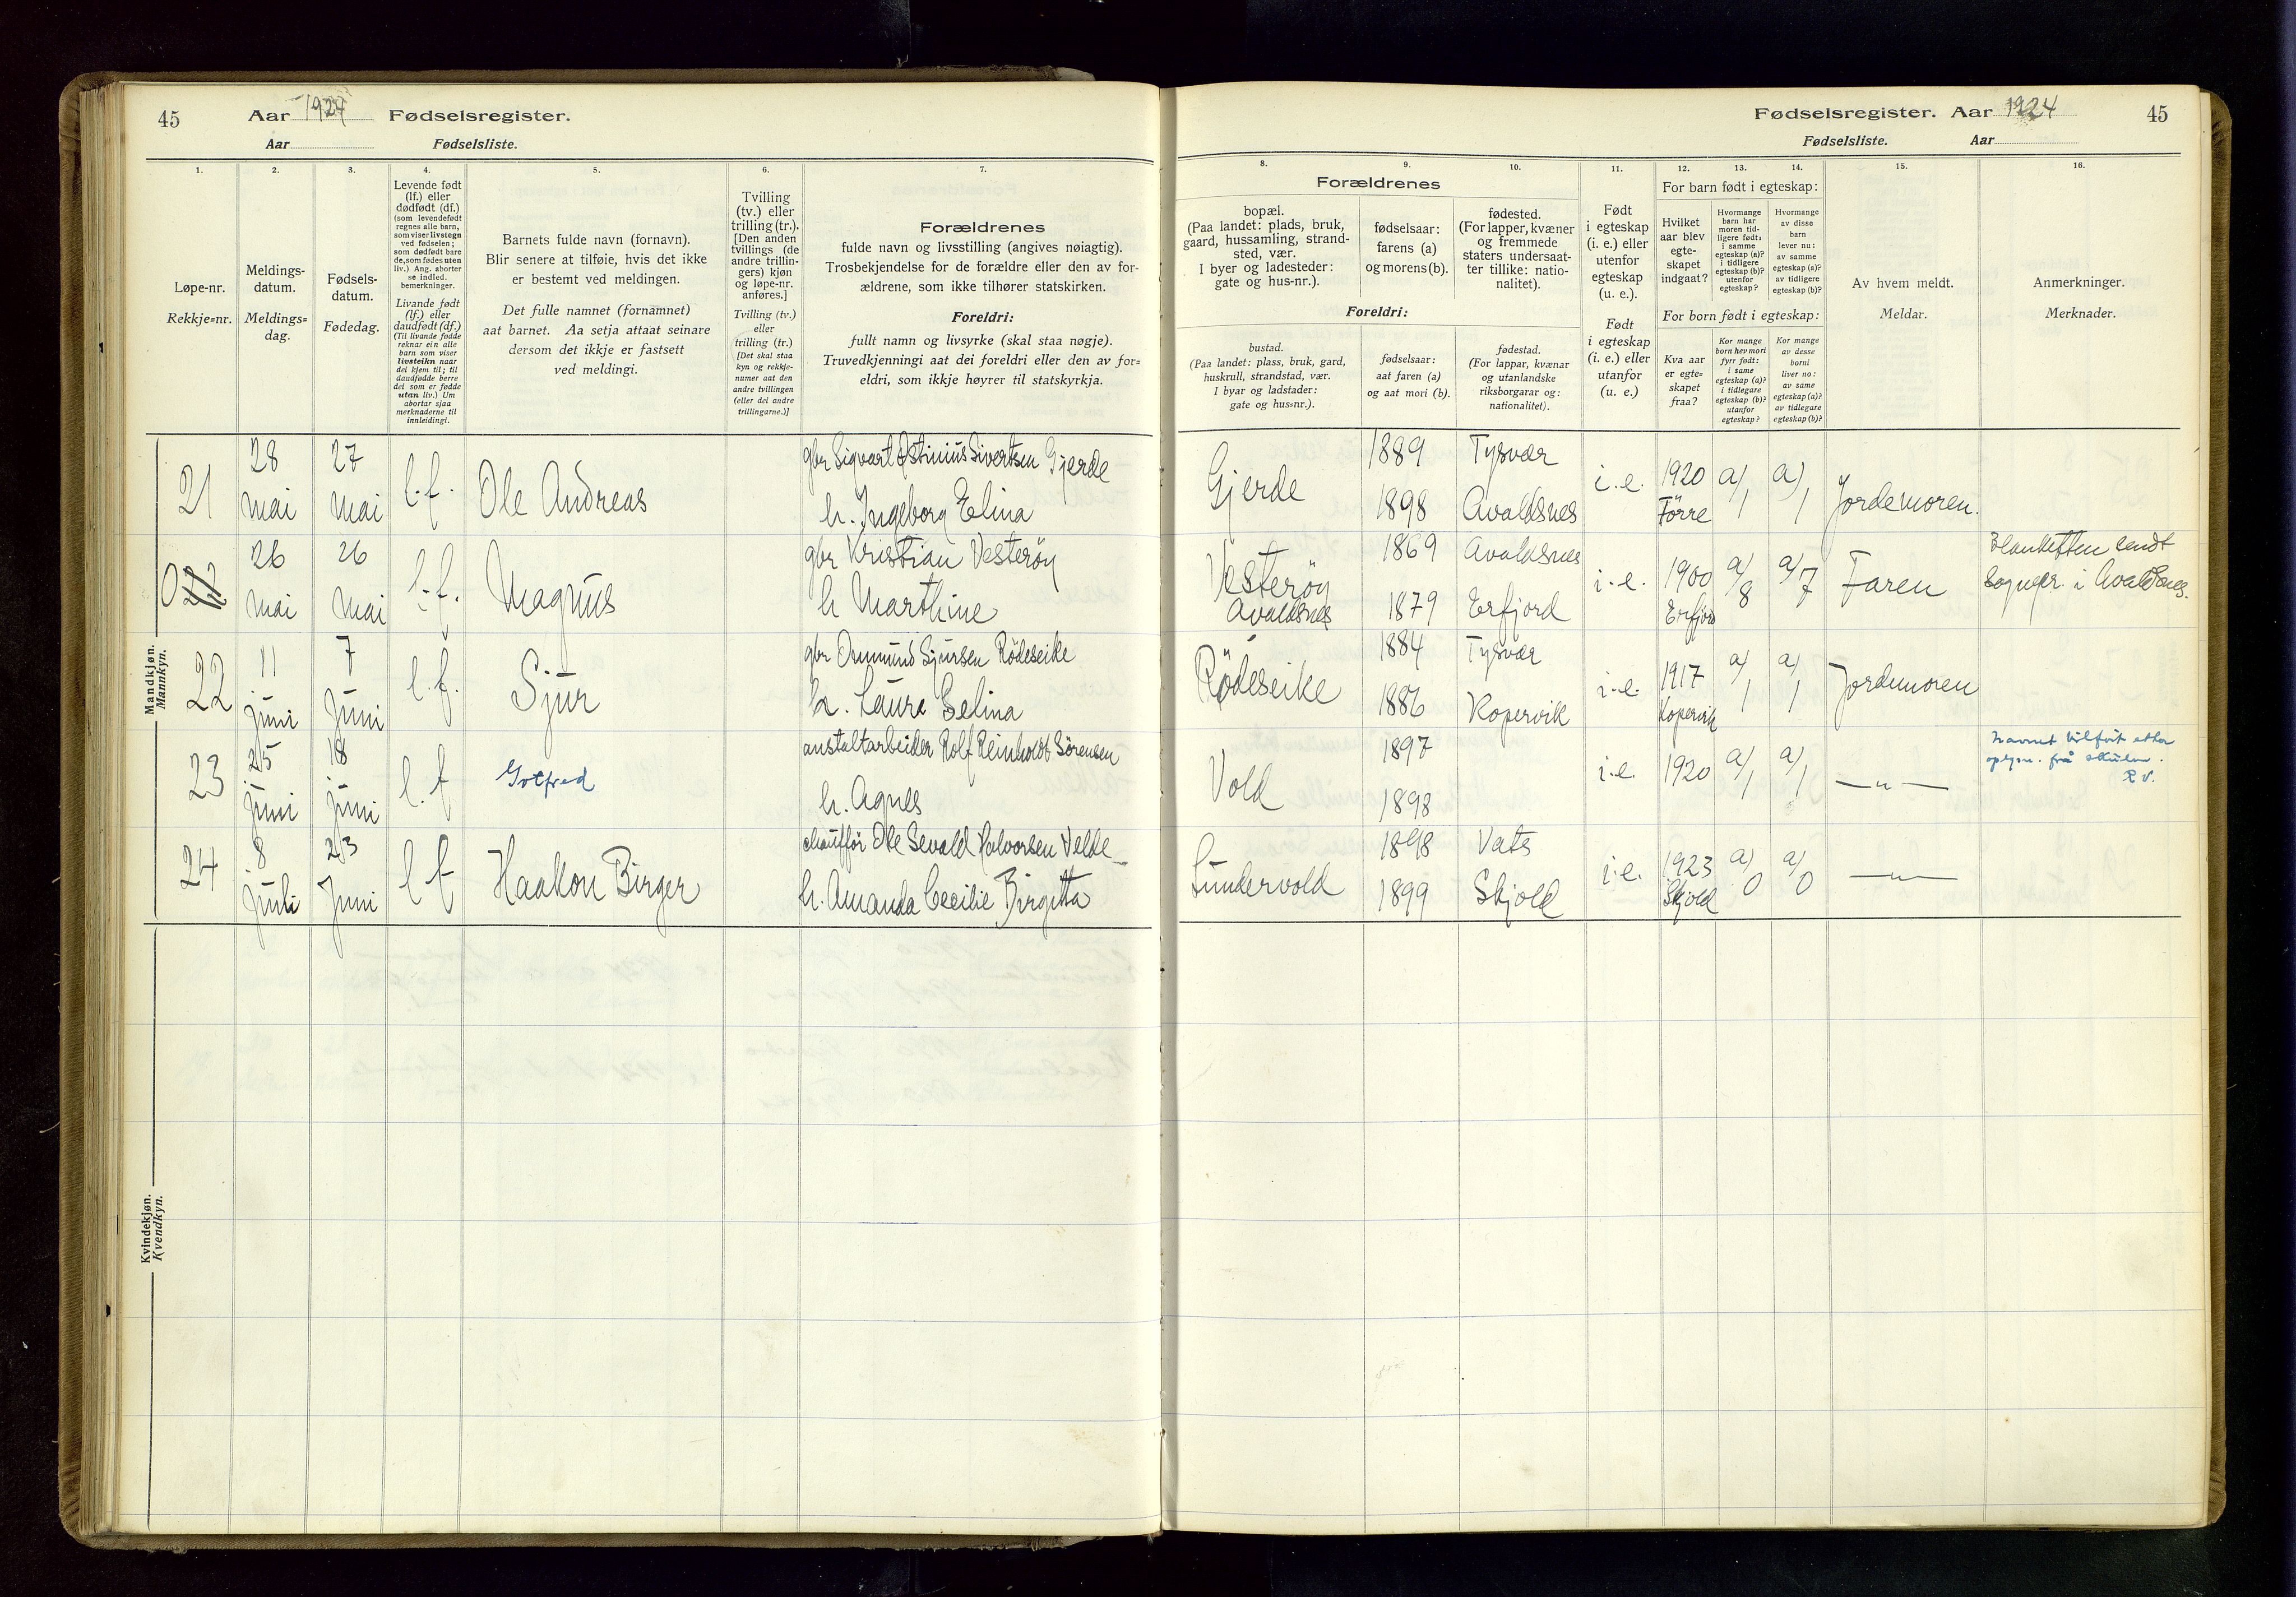 45 Aar 1924 Fødselsregister.
Aar Fødselsliste.
1. 2. 3. 4. 5. 6. 7.
Løpe-nr.
Rekkje=nr.
Meldings-
datum.
Meldings=
dag.
Fødsels-
datum.
Fødedag.
Levende født
(lf.) eller
dødfødt (df.)
(som levendefødt
regnes alle barn,
som viser livstegn
ved fødselen;
som dødfødt bare
de, som fødes uten
liv.) Ang. aborter
se indled.
bemerkninger.
Livande født
(lf.) eller
daudfødt (df.)
(Til livande fødde
reknar ein alle
barn som viser
livsteikn naar
dei kjem til; til
daudfødde berre
dei som er fødde
utan liv.) Um
abortar sjaa
merknaderne til
innleidingi.
Barnets fulde navn (fornavn).
Blir senere at tilføie, hvis det ikke
er bestemt ved meldingen.
Det fulle namnet (fornamnet)
aat barnet. Aa setja attaat seinare
dersom det ikkje er fastsett
ved meldingi.
Tvilling
(tv.) eller
trilling (tr.).
[Den anden
tvillings (de
andre trillin-
gers) kjøn
og løpe-nr.
anføres.]
Tvilling (tv.)
eller
trilling (tr.)
[Det skal staa
kyn og rekkje-
numer aat den
andre tvillingen
(eller dei andre
trillingarne.)]
Forældrenes
fulde navn og livsstilling (angives nøiagtig).
Trosbekjendelse for de forældre eller den av for-
ældrene, som ikke tilhører statskirken.
Foreldri:
fullt namn og livsyrke (skal staa nøgje).
Truvedkjenningi aat dei foreldri eller den av for=
eldri, som ikkje høyrer til statskyrkja.
Mandkjøn.
Mannkyn.
21 28 mai 27 mai l.f. Ole Andreas gbr Sigvart Østinius Sivertsen Gjerde
h. Ingeborg Elina
0 22 26 mai 26 mai l.f. Magnus gbr Kristian Vesterøy
h Marthine
22 11 juni 7 juni l.f. Sjur gbr Ommund Sjursen Rödeseike
h. Laura Selina
23 25 juni 18 juni l.f Gotfred anstaltarbeider Rolf Reinholdt Sörensen
h. Agnes
24 8 juli 23 Juni l f Haakon Birger chauffør Ole Sevald Halvorsen Velde
h. Amanda Cecilie Birgitta
Kvindekjøn.
Kvendkyn.
Fødselsregister. Aar 1924 45
Fødselsliste. Aar
8. 9. 10. 11. 12. 13. 14. 15. 16.
Forældrenes
bopæl.
(Paa landet: plads, bruk,
gaard, hussamling, strand-
sted, vær.
I byer og ladesteder:
gate og hus-nr.).
fødselsaar:
farens (a)
og morens (b).
fødested.
(For lapper, kvæner
og fremmede
staters undersaat-
ter tillike: natio-
nalitet).
Foreldri:
bustad.
(Paa landet: plass, bruk, gard,
huskrull, strandstad, vær.
I byar og ladstader:
gate og hus=nr.).
fødselsaar:
aat faren (a)
og aat mori (b).
fødestad.
(For lappar, kvænar
og utanlandske
riksborgarar og:
nationalitet).
Født
i egteskap
(i. e.) eller
utenfor
egteskap
(u. e.).
Født
i egteskap
(i. e.) eller
utanfor
(u. e.)
For barn født i egteskap:
Hvilket
aar blev
egte-
skapet
indgaat?
Hvormange
barn har
moren tid-
ligere født:
i samme
egteskap (a)?
i tidligere
egteskap (b)?
utenfor
egteskap?
Hvormange
av disse
barn
lever nu:
av samme
egteskap (a)?
av tidligere
egteskap (b)?
For born født i egteskap:
Kva aar
er egte=
skapet
fraa?
Kor mange
born hev mori
fyrr født:
i same
egteskap (a)?
i tidlegare
egteskap (b)?
utanfor
egteskap?
Kor mange
av desse
borni
liver no:
av same
egteskap (a)?
av tidlegare
egteskap (b)?
Av hvem meldt.
Meldar.
Anmerkninger.
Merknader.
Gjerde 1889 Tysvær i.e. 1920 a/1 a/1 Jordemoren.
1898 Avaldsnes Förre
Vesterøy 1869 Avaldsnes i.e. 1900 a/8 a/7 Faren Blanketten sendt
Avaldsnes 1879 Erfjord Erfjord sognepr. i Avaldsnes.
Rödeseike 1884 Tysvær i.e. 1917 a/1 a/1 Jordemoren
1886 Kopervik Kopervik
Vold 1897 i.e. 1920 a/1 a/1 — „ — Navnet tilført etter
1898 opplysn. frå skulen.
R V.
Sundervold 1898 Vats i.e. 1923 a/0 a/0 — „ —
1899 Skjold Skjold